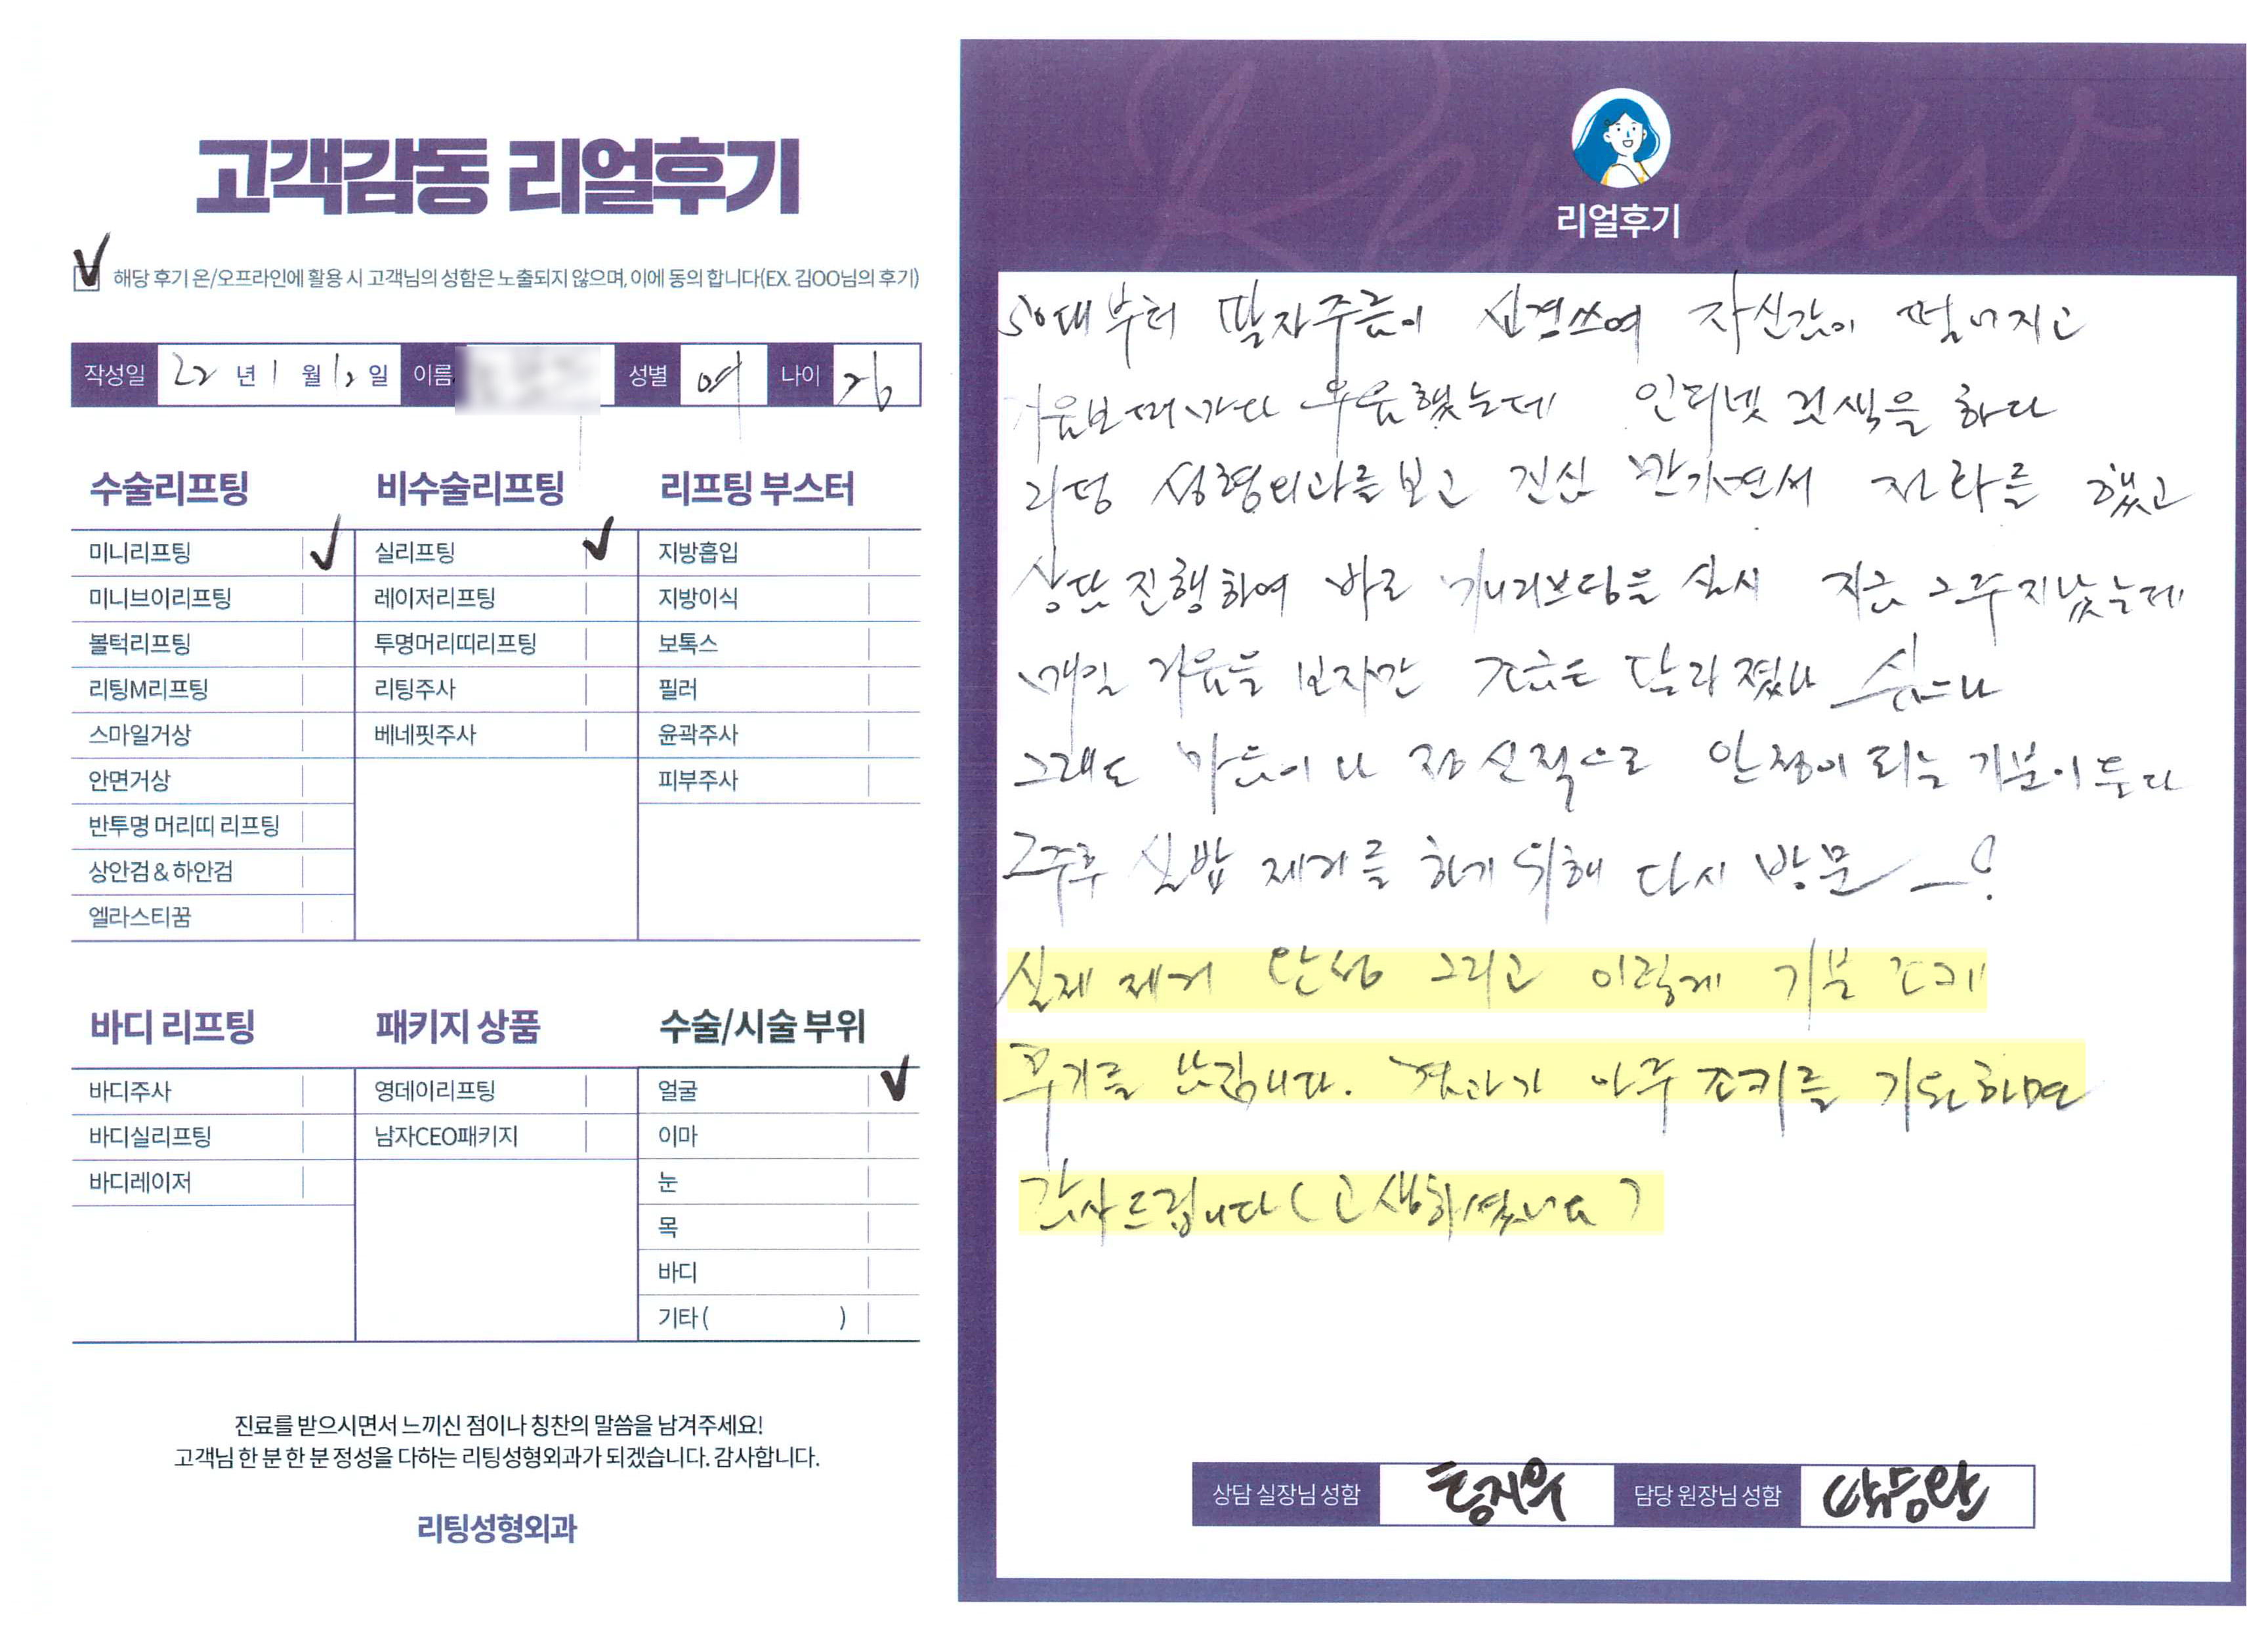 고객감동 리얼후기
해당 후기 온/오프라인에 활용 시 고객님의 성함은 노출되지 않으며, 이에 동의 합니다(EX. 김OO님의 후기)
작성일 22 년 1 월 12 일 이름 성별 여 나이
수술리프팅
미니리프팅
미니브이리프팅
볼턱리프팅
리팅M리프팅
스마일거상
안면거상
반투명 머리띠 리프팅
상안검 & 하안검
엘라스티꿈
비수술리프팅
실리프팅
레이저리프팅
투명머리띠리프팅
리팅주사
베네핏주사
리프팅 부스터
지방흡입
지방이식
보톡스
필러
윤곽주사
피부주사
바디 리프팅
바디주사
바디실리프팅
바디레이저
패키지 상품
영데이리프팅
남자CEO패키지
수술/시술 부위
얼굴
이마
눈
목
바디
기타 ( )
진료를 받으시면서 느끼신 점이나 칭찬의 말씀을 남겨주세요!
고객님 한 분 한 분 정성을 다하는 리팅성형외과가 되겠습니다. 감사합니다.
리팅성형외과
Review
리얼후기
50대부터 팔자주름이 신경쓰여 자신감이 떨어지고
거울볼때마다 우울했는데 인터넷 검색을 하다
리팅 성형외과를 보고 진심 반가면서 전화를 했고
상담 진행하여 바로 실시 지금 2주 지났는데
매일 거울을 보지만 조금은 달라졌나 싶으나
그래도 마음이나 정신적으로 안정이 되는 기분이 든다
2주후 실밥 제거를 하기 위해 다시 방문 _ !
실제 제거 완성 그리고 이렇게 기분 조케
후기를 남깁니다. 결과가 아주 조키를 기원하면
감사드립니다 ( 고생하셨어요 )
상담 실장님 성함 담당 원장님 성함